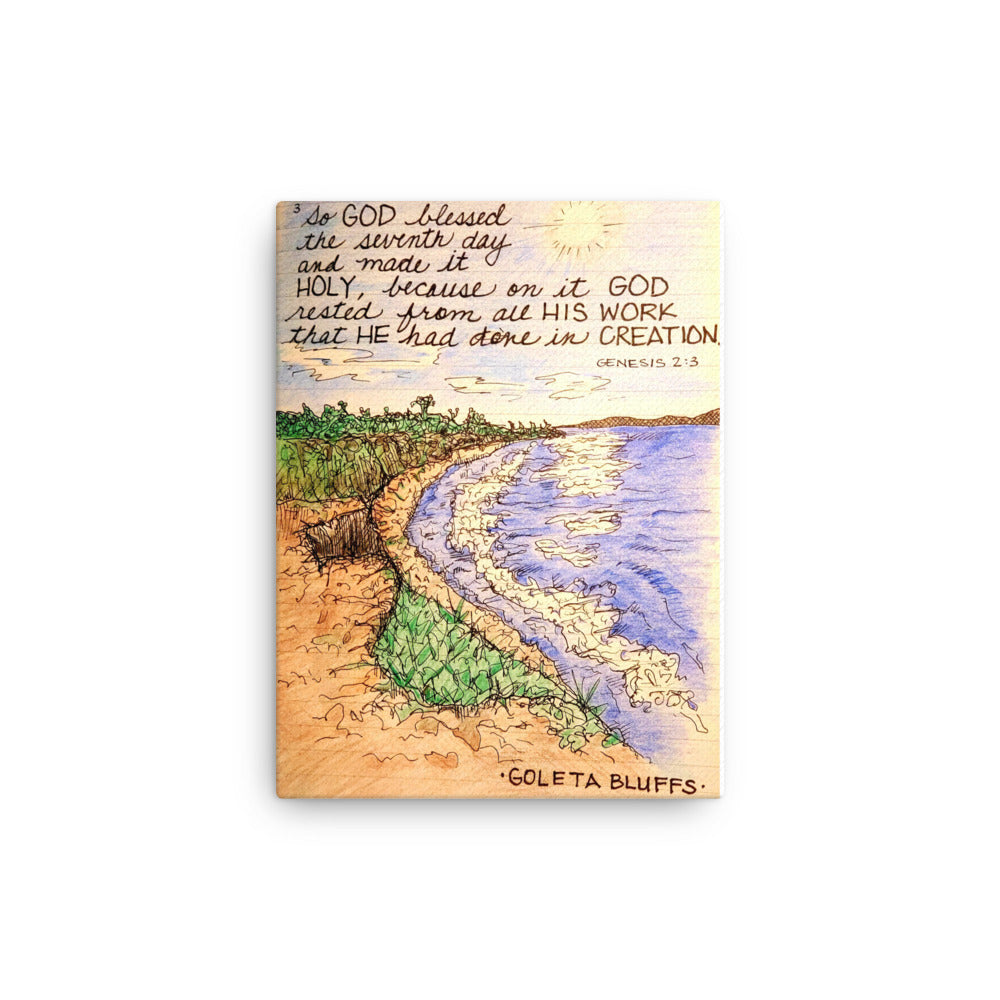 3 So GOD blessed
the seventh day
and made it
HOLY, because on it GOD
rested from all HIS WORK
that HE had done in CREATION.
GENESIS 2:3
·GOLETA BLUFFS·